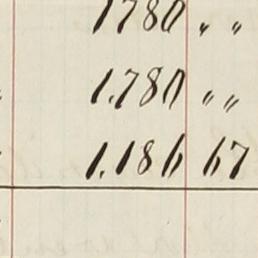 1780 〃 〃
1.780 〃 〃
1.186 67